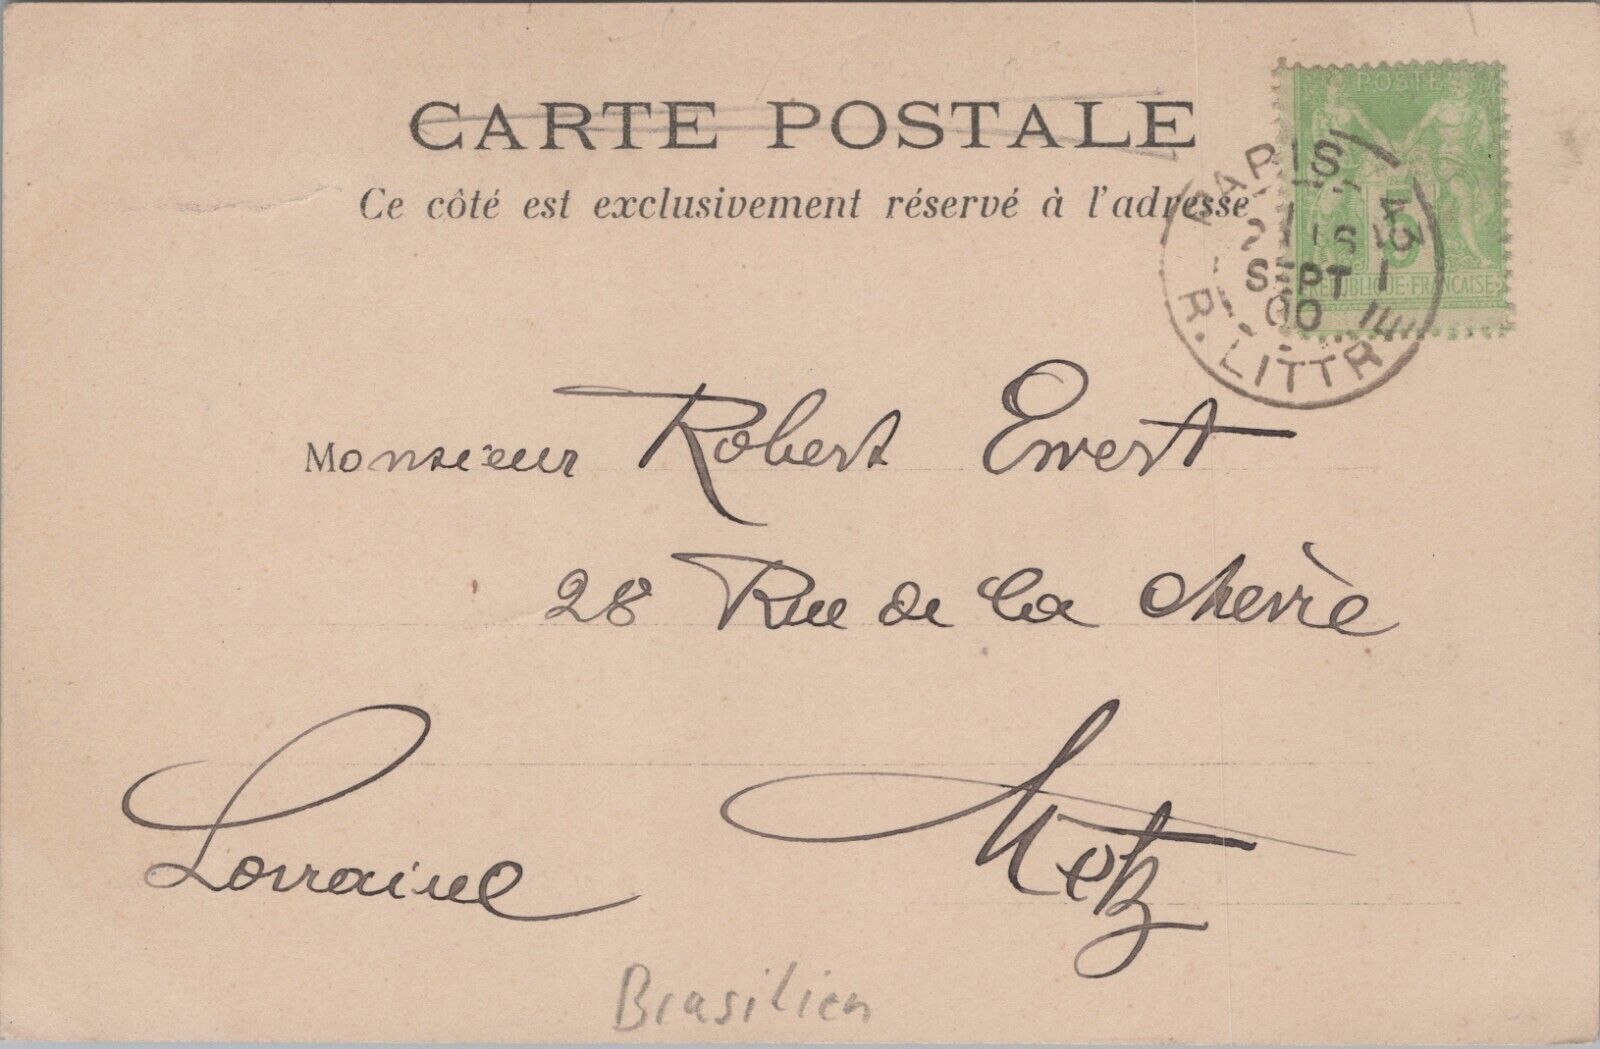 CARTE POSTALE
Ce côté est exclusivement réservé à l'adresse
POSTE
5
REPUBLIQUE FRANÇAISE
PARIS
SEPT
00
R. LITTR
Monsieur Robert Ewert
28 Rue de la Chèvre
Lorraine Metz
Brasilien